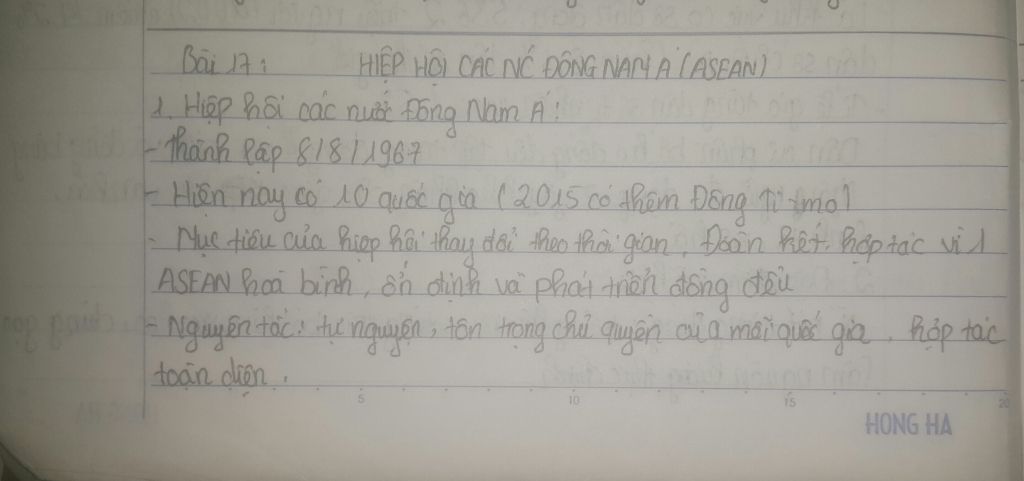 Bài 17: HIỆP HỘI CÁC NC ĐÔNG NAM Á (ASEAN)
1. Hiệp hội các nước Đông Nam Á:
- Thành lập 8/8/1967
- Hiện nay có 10 quốc gia (2015 có thêm Đông Ti-mo)
- Mục tiêu của hiệp hội thay đổi theo thời gian. Đoàn kết, hợp tác vì 1
ASEAN hoà bình, ổn định và phát triển đồng đều
- Nguyên tắc: tự nguyện, tôn trọng chủ quyền của mỗi quốc gia, hợp tác
toàn diện.
5 10 15 20
HONG HA